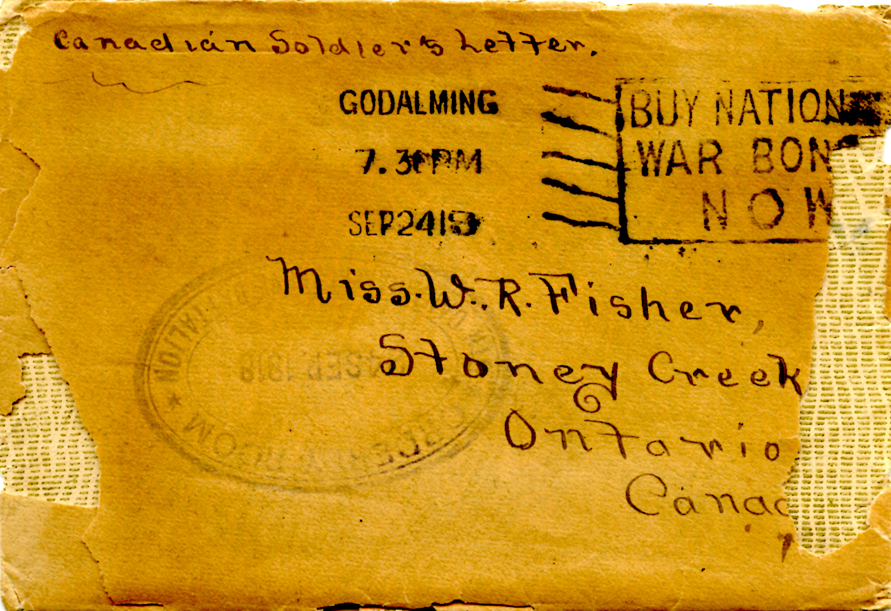 Canadian Soldier's Letter.
GODALMING
7.30 PM
SEP 24 18
BUY NATION
WAR BON
NOW
Miss. W. R. Fisher,
Stoney Creek
Ontario
Canad
SEP 1918